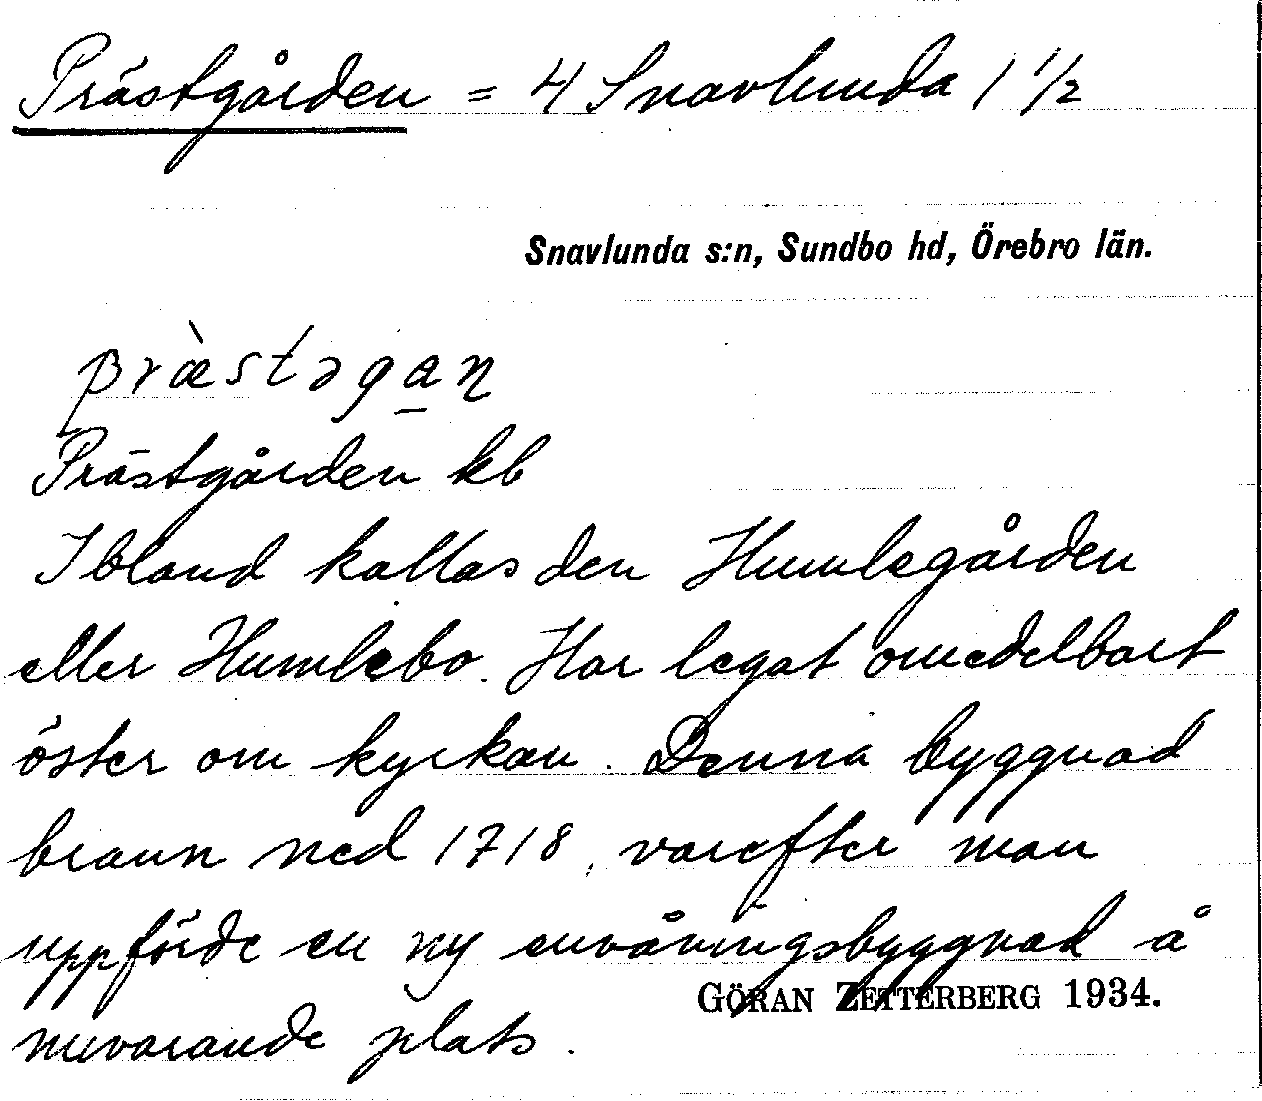 Prästgården = 4 Snavlunda 1 1/2
Snavlunda s:n, Sundbo hd, Örebro län.
præ̀stəgan
Prästgården kb
Ibland kallas den Humlegården
eller Humlebo. Har legat omedelbart
öster om kyrkan. Denna byggnad
brann ned 1718, varefter man
uppförde en ny envåningsbyggnad å
GÖRAN ZETTERBERG 1934.
nuvarande plats.